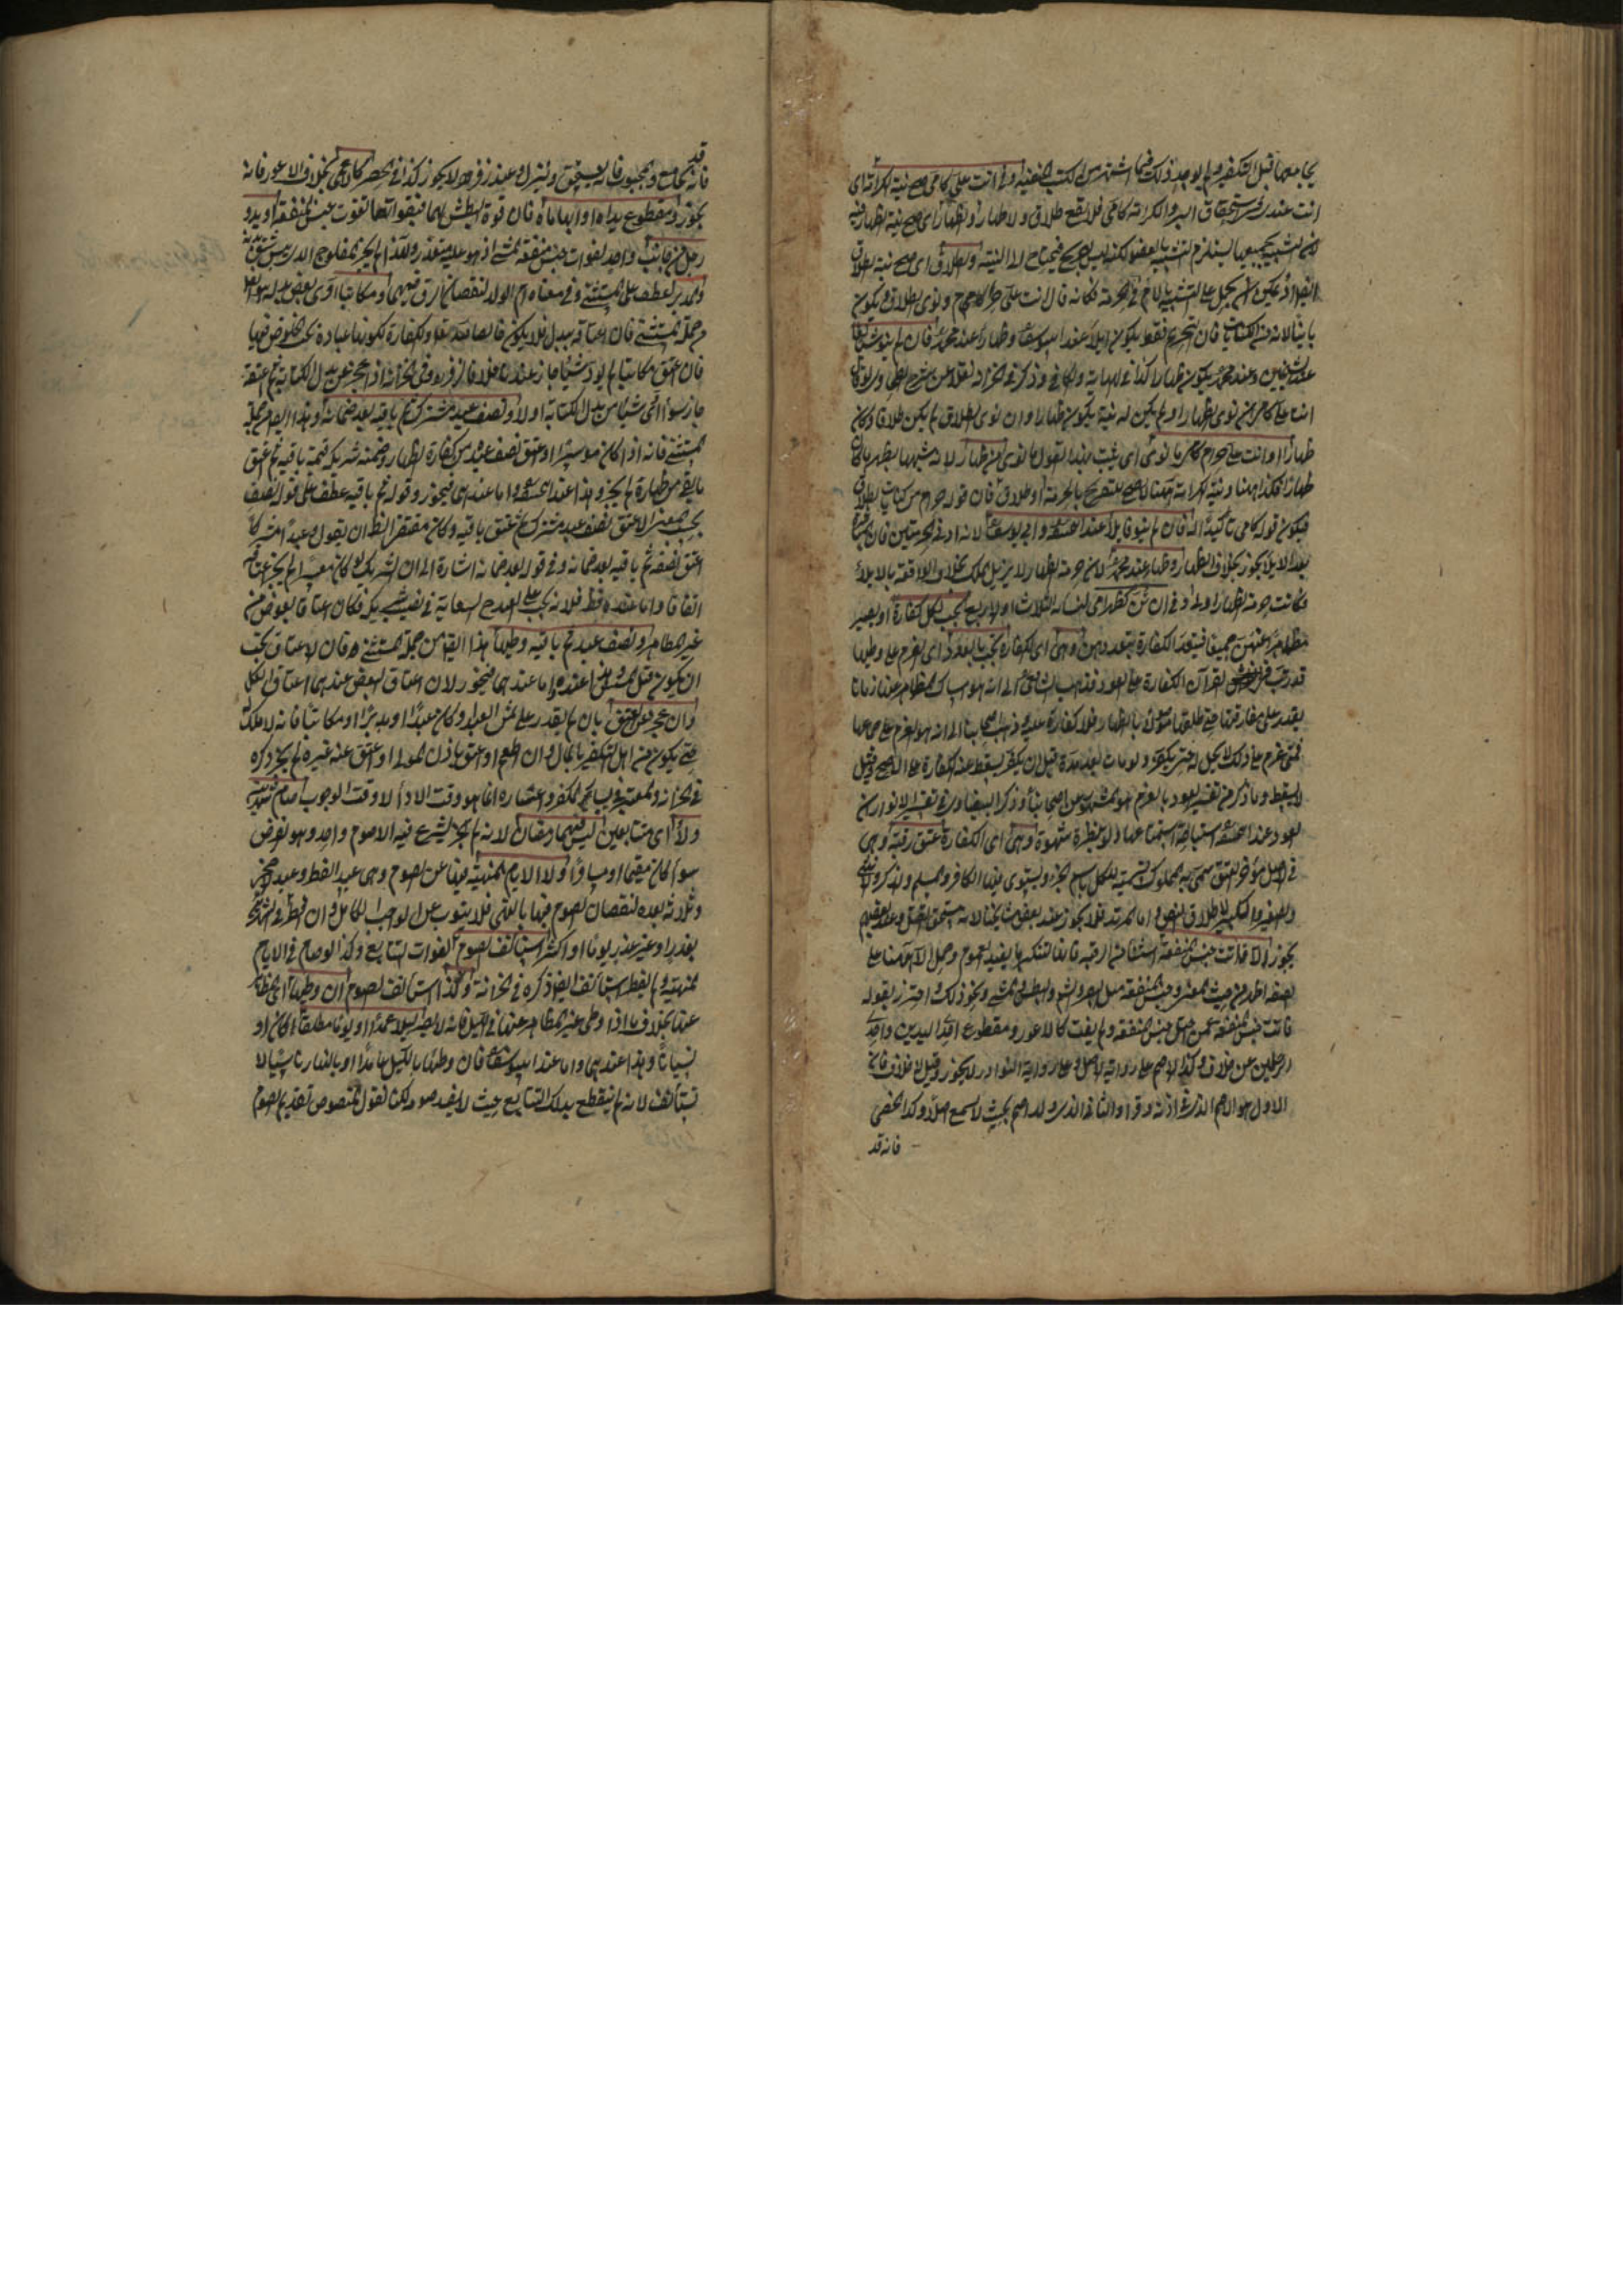 يجامعها قبل التكفير ولم يوجد ذلك فيما اشتهر من الكتب الحنفية وفي انت علي كامي صح نية الكرامة اي
انت عندي في استحقاق البر والكرامة كامي فلا يقع طلاق ولا ظهار ونية الظهار اي صح نية الظهار فيه
لان التشبيه بجميعها يستلزم التشبيه بالعضو لكنه ليس بصريح فيحتاج الى النية والطلاق اي صح نية الطلاق
ايضا اذ يمكن ان يحمل على التشبيه بالام في الحرمة فكانه قال انت علي حرام كامي ونوى الطلاق فيكون
باينا لانه من الكنايات فان التحريم فقط يكون ايلاء عند ابي يوسف وظهارا عند محمد فان لم ينو شيئا لغا
عند الشيخين وعند محمد يكون ظهارا كذا في الهداية والكافي وذكر في الخزانة نقلا عن شرح الطحاوي لو قال
انت علي كامي ان نوى الظهار او لم يكن له نية يكون ظهارا وان نوى الطلاق لم يكن طلاقا وكان
ظهارا وانت علي حرام كامي ما نوى اي يثبت بهذا القول ما نوى من ظهار لانه شبهها بظهر
ظهارا فكذا هنا ونية الكرامة هنا لا تصح للتصريح بالحرمة او طلاق فان قوله حرام من كنايات الطلاق
فيكون قوله كامي تاكيدا له فان لم ينو فايلاء عند ابي حنيفة وابي يوسف لانه ادنى الحرمتين فان
بعد الايلاء يجوز بخلاف الظهار وظهار عند محمد لان حرمة الظهار لا يزيل الملك بخلاف الواقعة بالايلاء
فكانت حرمة الظهار اولى وفي انتن كظهر امي لنسائه الثلاث او الاربع تجب لكل كفارة اذ يصير
مظاهرا منهن جميعا فيتعدد الكفارة بتعددهن وهي اي الكفارة تجب بالعود اي العزم على وطيها
قد رتب في القرآن الكفارة على العود فذهب الشافعي الى انه هو امساك المظاهر عنها زمانا
يقدر على مفارقتها حتى طلقها موصولا بالظهار فلا كفارة عليه وذهب اصحابنا الى انه هو العزم على جماعها
فمتى عزم على ذلك لا يحل له حتى يكفر ولو ماتت بعد مدة قبل ان يكفر يسقط عنه الكفارة على الصحيح وقيل
لا يسقط وما ذكر من تفسير العود بالعزم هو المشهور من اصحابنا وذكر البيضاوي في تفسير الانوار ان
العود عند ابي حنيفة استباحة استمتاعها ولو بنظرة بشهوة وهي اي الكفارة عتق رقبة وهي
في الاصل مؤخر العنق سمي به المملوك تسمية للكل باسم الجزء ويستوي فيها الكافر والمسلم والذكر والانثى
والصغير والكبير لاطلاق النص واما المرتد فلا يجوز عند بعض مشايخنا لانه مستحق القتل وعند بعضهم
يجوز الا فائت جنس المنفعة استثناء من الرقبة فانها لتنكيرها يفيد العموم وحمل الا هنا على
الصفة اظهر من حيث المعنى وجنس المنفعة مثل البصر والشم والبطش والمشي ونحو ذلك واحترز بقوله
فائت جنس المنفعة عمن اختل جنس المنفعة ولم يفت كالاعور ومقطوع احدى اليدين واحدى
الرجلين من خلاف وكذا الاصم على رواية الاصل وعلى رواية النوادر لا يجوز وقيل لا خلاف فان
الاول هو الاصم الذي في اذانه وقر والثاني الذي ولد اصم بحيث لا يسمع اصلا وكذا الخصي
فانه قد
فانه قد يجامع والمجبوب فانه يسحق وينزل وعند زفر لا يجوز كذا في الحصر كالاعمى بخلاف الاعور فانه
يجوز ومقطوع يداه او ابهاماه فان قوة البطش بهما فبفواتهما تفوت جنس المنفعة او يد و
رجل من جانب واحد لفوات جنس منفعة المشي اذ هو عليه متعذر ولهذا لم يجز المفلوج الذي يبس شقه
والمدبر عطف على المستثنى وفي معناه ام الولد لنقصان الرق فيهما ومكاتبا ادى بعض بدله
من جملة المستثنى فان اعتاقه ببدل فلا يكون خالصا لله تعالى والكفارة لكونها عبادة يجب الخلوص فيها
فان اعتق مكاتبا لم يؤد شيئا جاز عندنا خلافا لزفر وفي الخزانة اذا عجز عن بدل الكتابة ثم اعتقه
جاز سواء ادى شيئا من بدل الكتابة اولا ونصف عبد مشترك ثم باقيه بعد ضمانه وهذا ايضا من جملة
المستثنى فانه اذا كان موسرا واعتق نصف عبد من كفارة الظهار وضمنه شريكه قيمة باقيه ثم اعتق
ما بقي من ظهاره لم يجز وهذا عند ابي حنيفة واما عندهما فيجوز وقوله ثم باقيه عطف على قوله نصف
بحسب المعنى الا عتق نصف عبد مشترك ثم عتق باقيه وكان مقتضى النظر ان يقول وعبدا مشتركا
اعتق نصفه ثم باقيه بعد ضمانه وفي قوله بعد ضمانه اشارة الى ان الشريك لو كان معسرا لم يجز اعتاقه
اتفاقا واما عنده فظ فلانه يجب على العبد السعاية في نصيب شريكه فكان اعتاقا بعوض من
غير المظاهر ونصف عبده ثم باقيه بعد وطيها هذا ايضا من جملة المستثنى فان الاعتاق يجب
ان يكون قبل المسيس عنده واما عندهما فيجوز لان اعتاق البعض عندهما اعتاق الكل
وان عجز عن العتق بان لم يقدر على ثمن العبد وكان عبدا او مدبرا او مكاتبا فانه لا ملك له
حتى يكون من اهل التكفير بالمال وان اطعم او اعتق باذن المولى او اعتق عنه غيره لم يجز ذكره
في الخزانة والمعتبر في يسار المكفر واعساره انما هو وقت الاداء لا وقت الوجوب صام شهرين
ولاء اي متتابعين ليس فيهما رمضان لانه لم يشرع فيه الا صوم واحد وهو الفرض
سواء كان مقيما او مسافرا ولا الايام المنهية فيها عن الصوم وهي عيد الفطر وعيد
وثلاثة بعده لنقصان الصوم فيها بالنهي فلا ينوب عن الواجب الكامل وان افطر في الشهرين
بعذر او غير عذر يوما او اكثر استانف الصوم لفوات التتابع وكذا لو صام في الايام
المنهية ولم يفطر استانف ايضا ذكره في الخزانة وكذا استانف الصوم ان وطيها اي المظاهر
عنها بخلاف ما اذا وطئ غير المظاهر عنها في الليل فانه لا يضر ليلا عمدا او يوما مطلقا اي كان او
نسيانا وهذا عندهما واما عند ابي يوسف فان وطئها بالليل عامدا او بالنهار ناسيا لا
يستانف لانه لم ينقطع بذلك التتابع حيث لا يفسد صومه لكنا نقول المنصوص تقديم الصوم